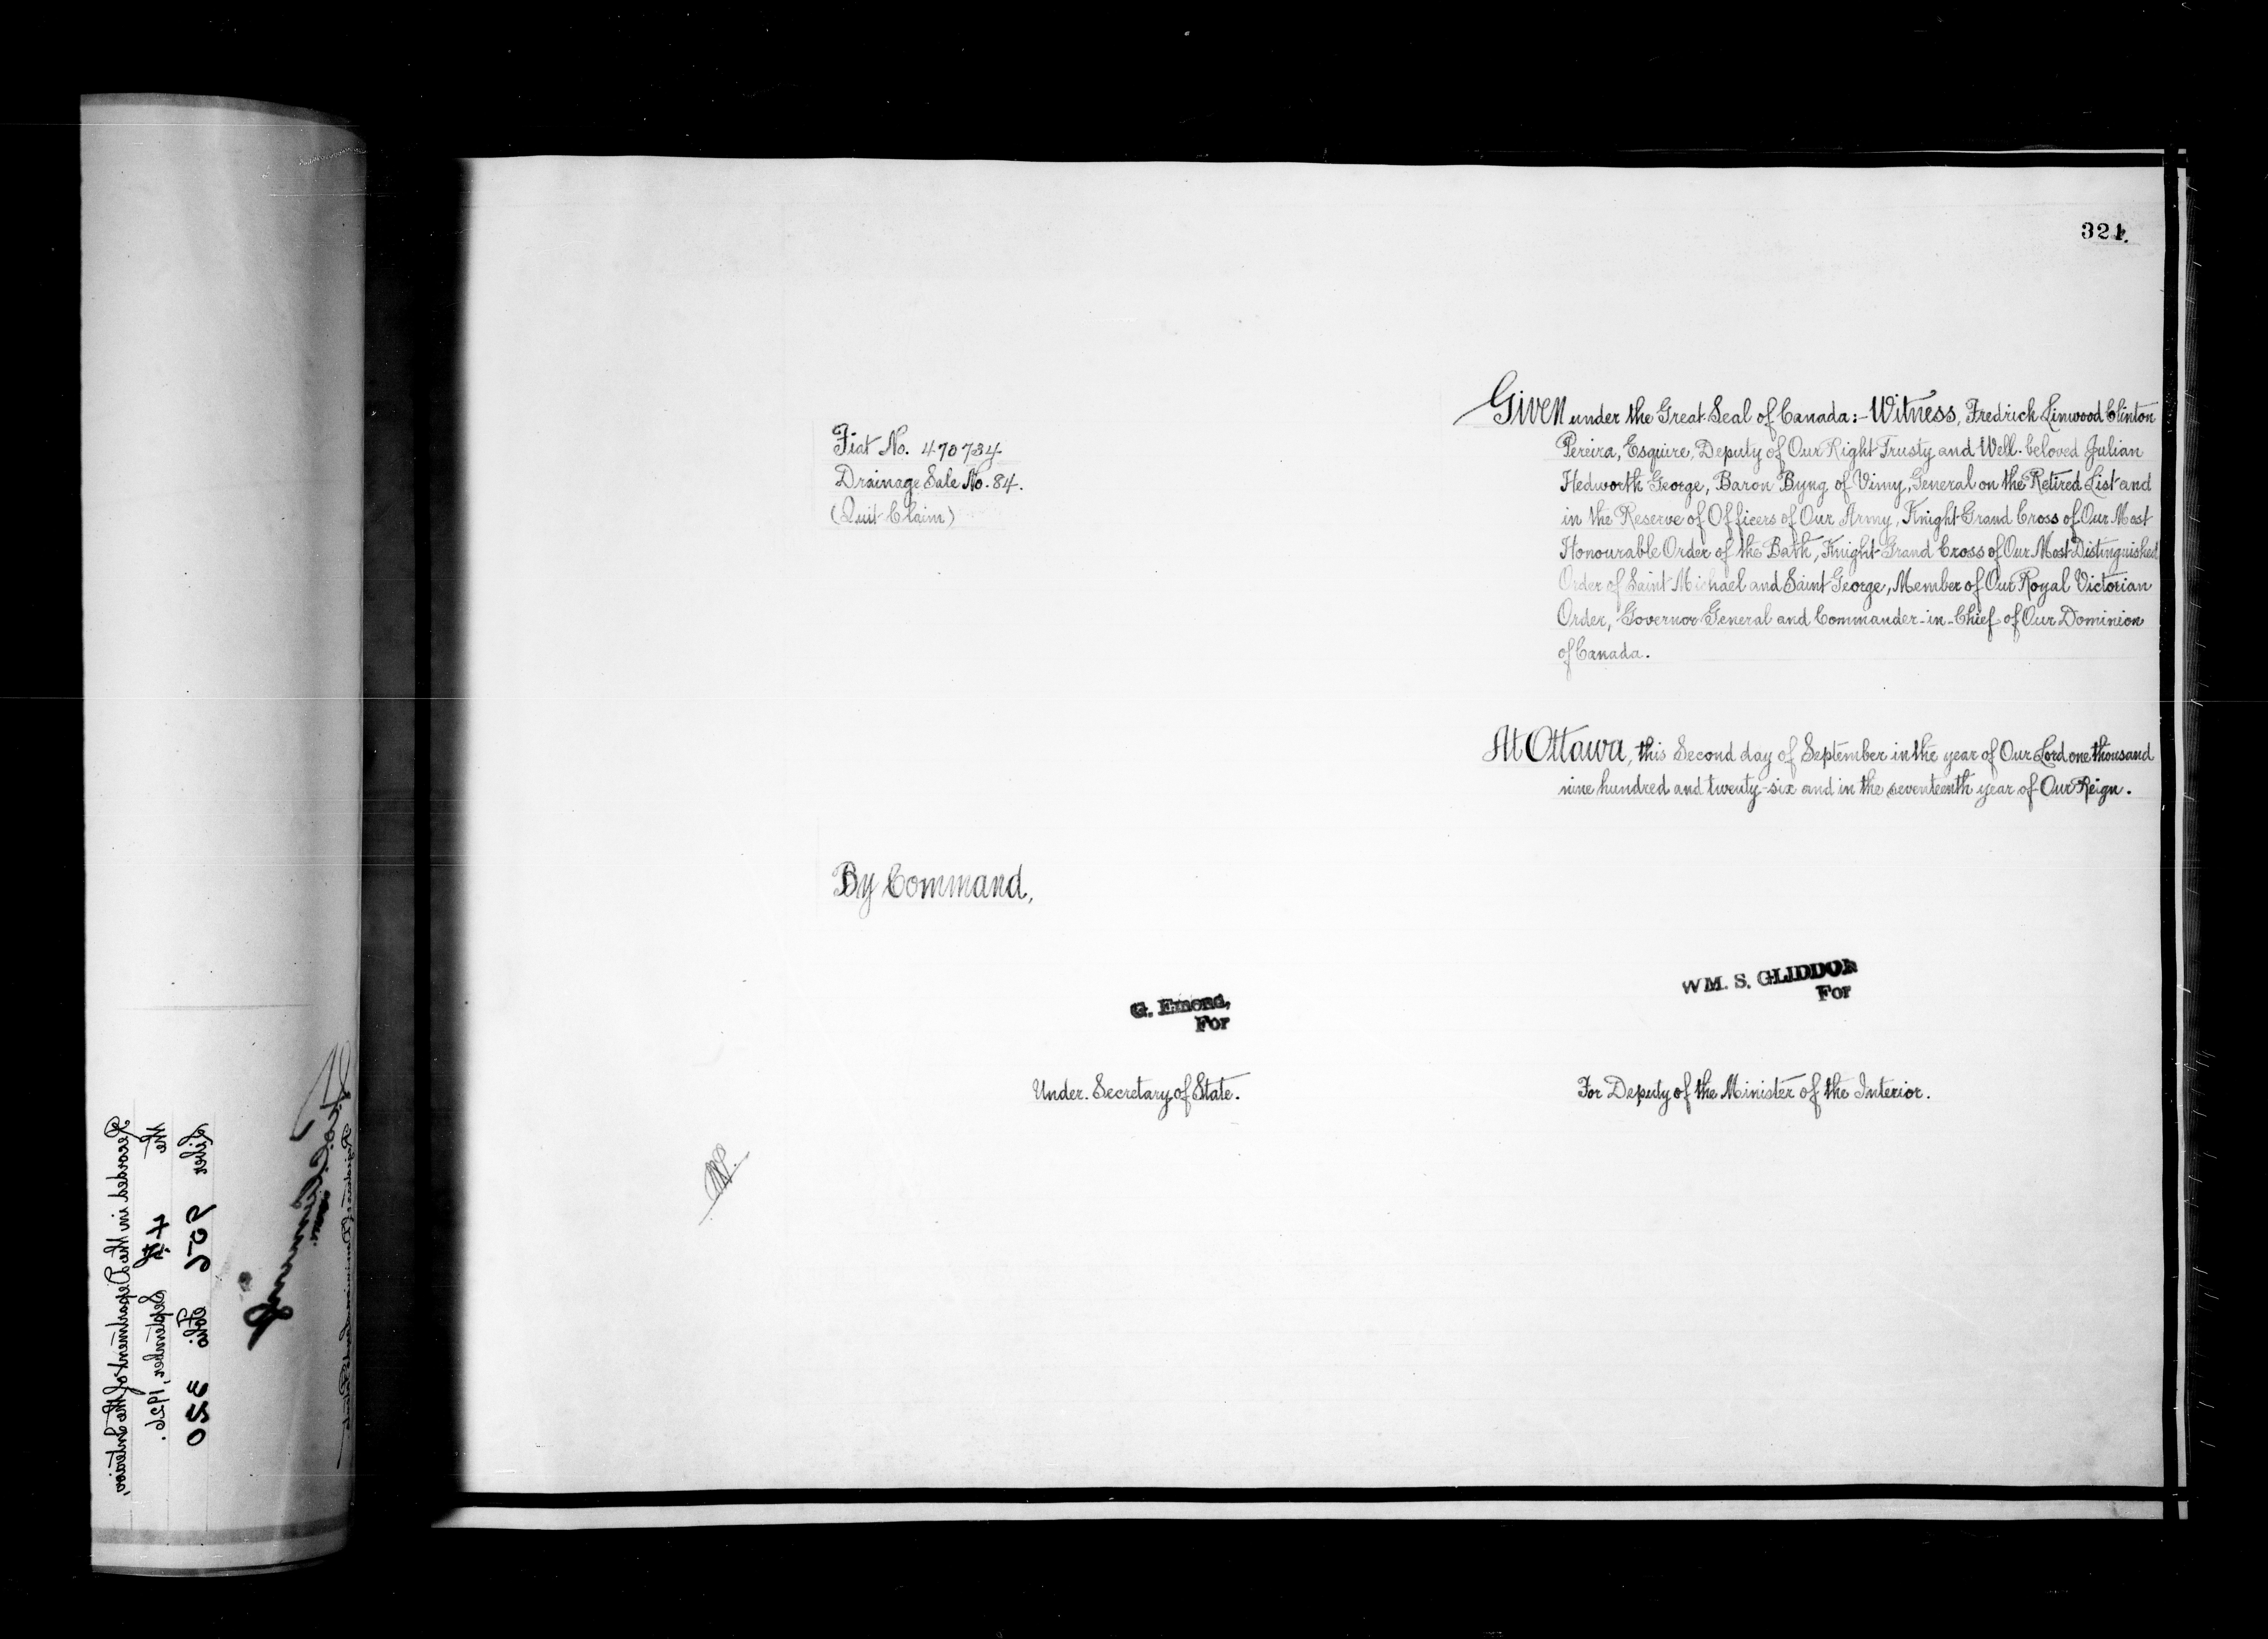 321.
Given under the Great Seal of Canada:- Witness, Fredrick Linwood Clinton
Pereira, Esquire, Deputy of Our Right Trusty and Well-beloved Julian
Hedworth George, Baron Byng of Vimy, General on the Retired List and
in the Reserve of Officers of Our Army, Knight Grand Cross of Our Most
Honourable Order of the Bath, Knight Grand Cross of Our Most Distinguished
Order of Saint Michael and Saint George, Member of Our Royal Victorian
Order, Governor General and Commander-in-Chief of Our Dominion
of Canada.
Fiat No. 470734
Drainage Sale No. 84.
(Quit Claim)
At Ottawa, this Second day of September in the year of Our Lord one thousand
nine hundred and twenty-six and in the seventeenth year of Our Reign.
By Command,
G. Emond,
For
Under-Secretary of State.
WM. S. GLIDDON
For
For Deputy of the Minister of the Interior.
Recorded in the Department of the Interior,
the 4th September, 1926.
Liber 506 Folio 320
Registrar of Dominion Lands Patents